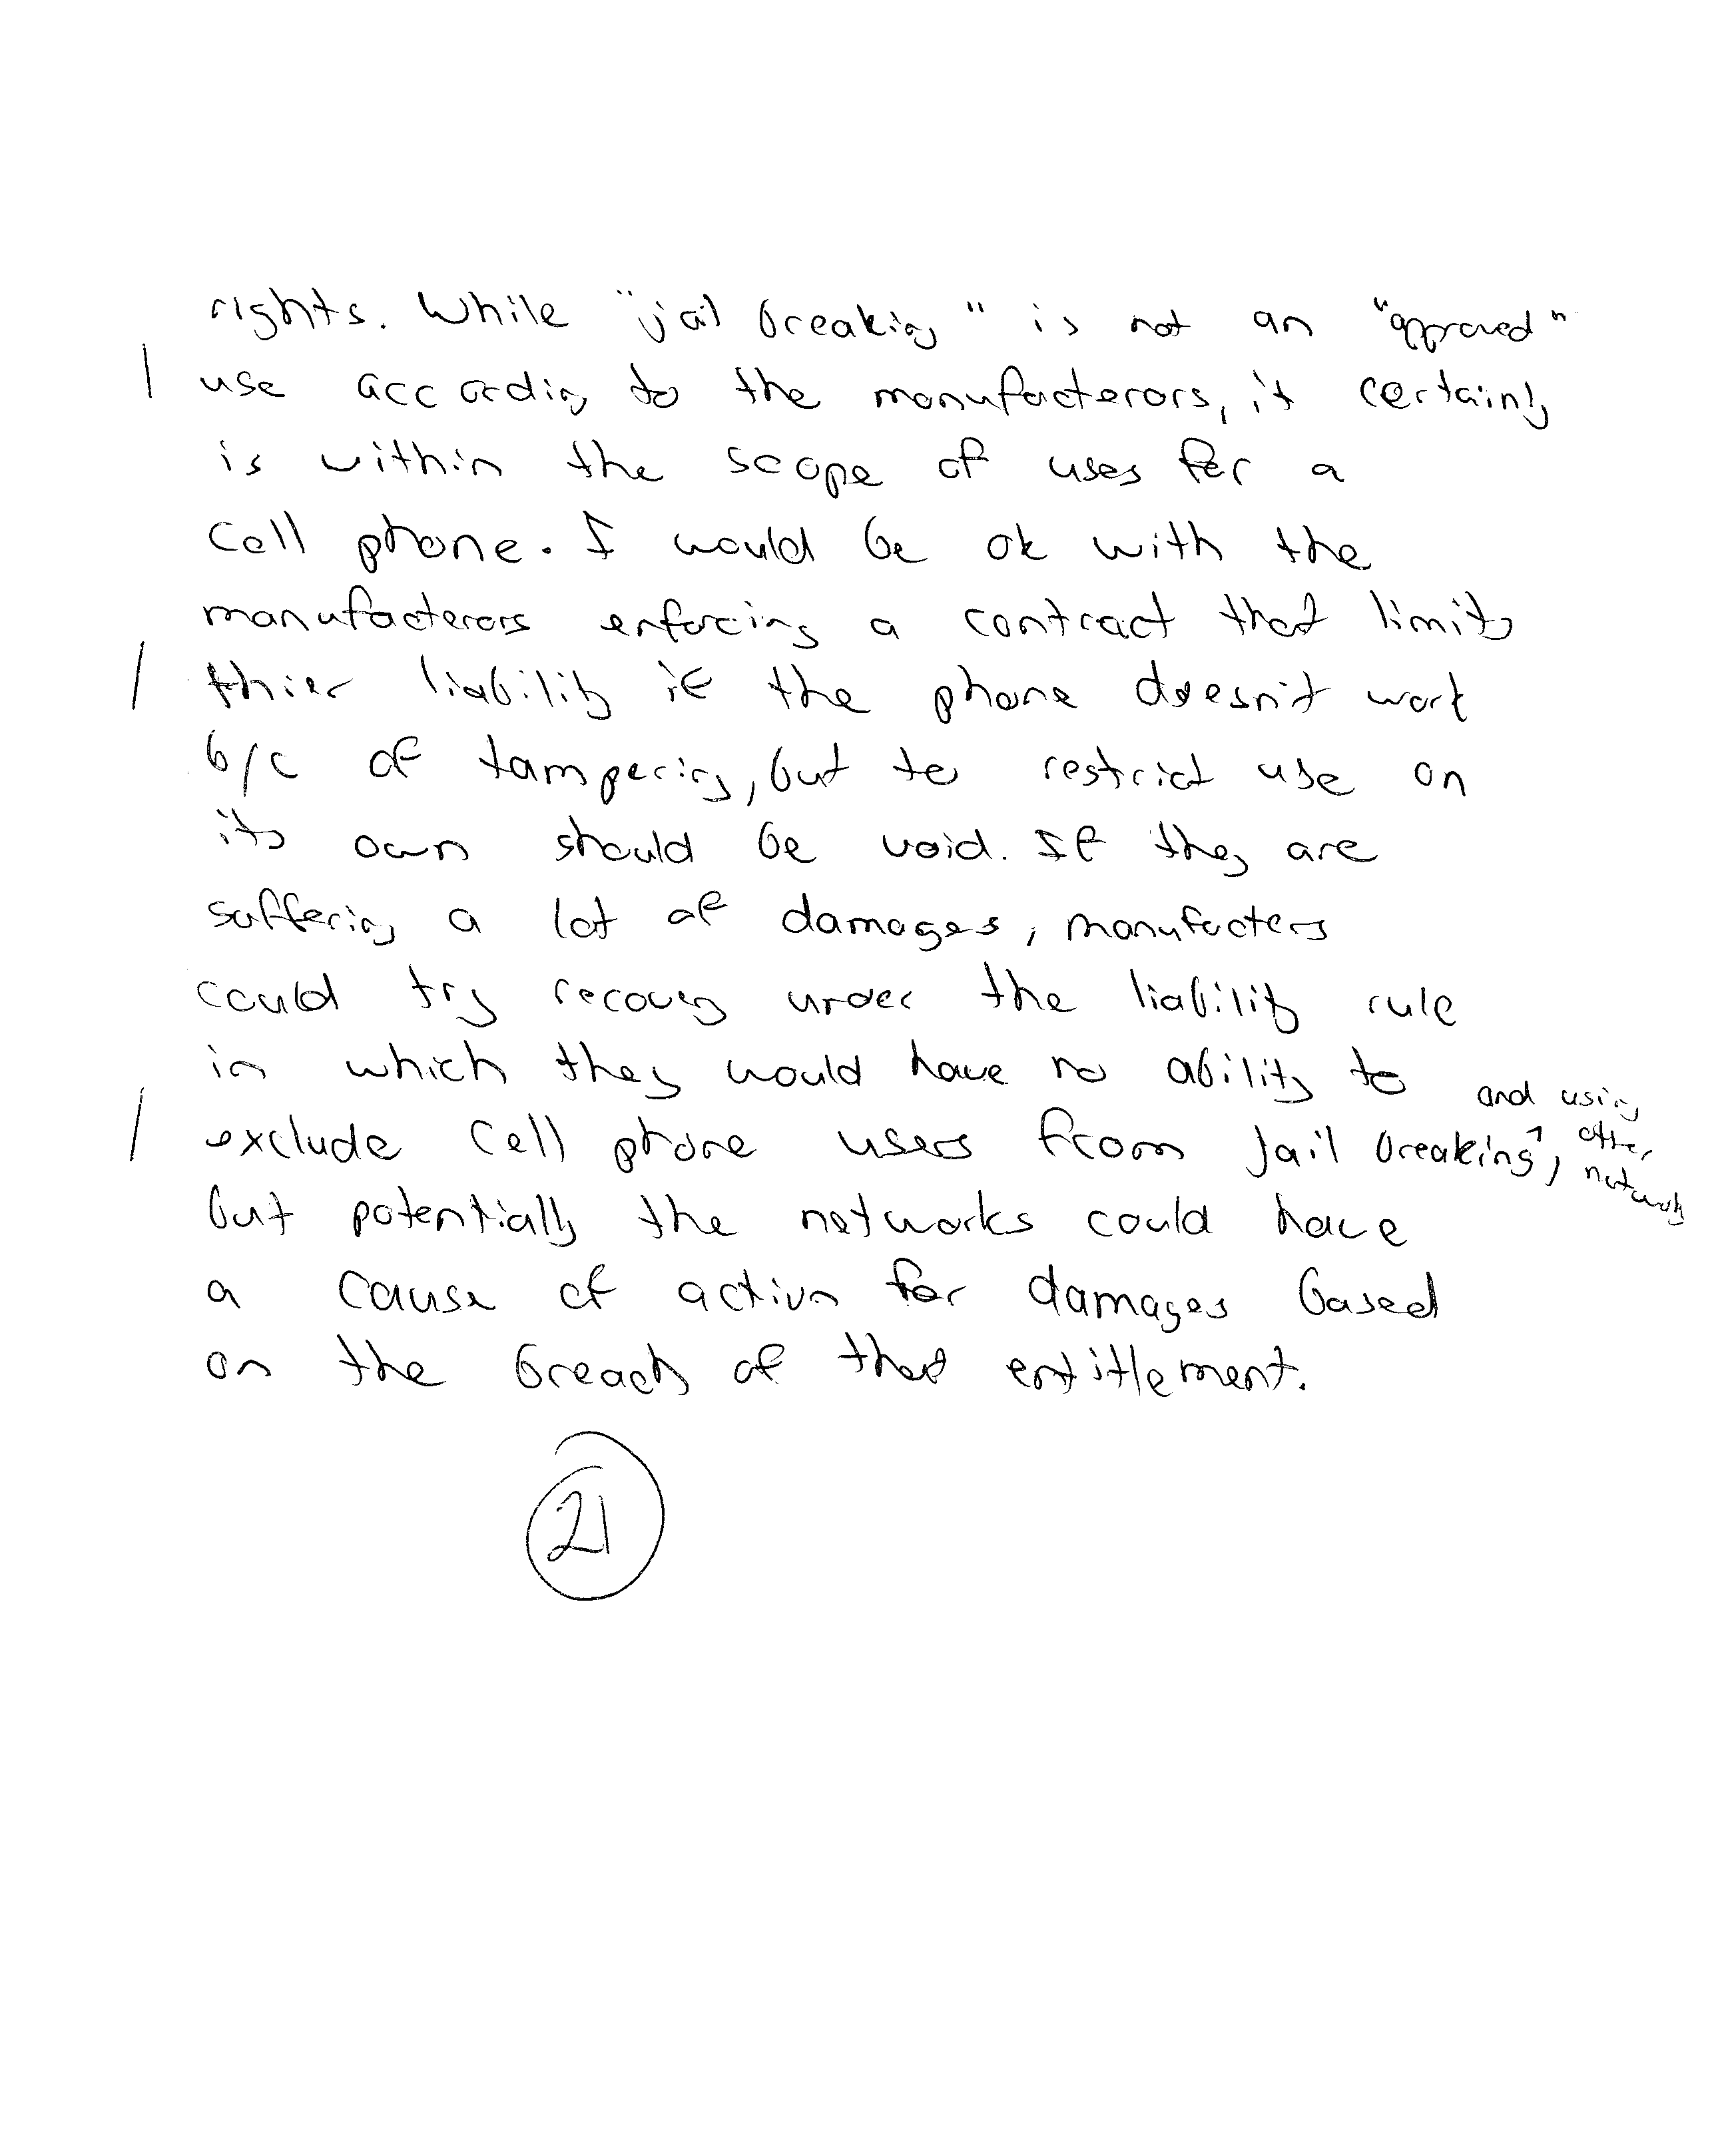 rights. While "jail breaking" is not an "approved"
use according to the manufacterors, it certainly
is within the scope of uses for a
cell phone. I would be ok with the
manufacterors enforcing a contract that limits
thier liability if the phone doesn't work
b/c of tampering, but to restrict use on
its own should be void. If they are
suffering a lot of damages, manufacters
could try recovery under the liability rule
in which they would have no ability to
exclude cell phone users from jail breaking ^ and using other networks,
but potentially the networks could have
a cause of action for damages based
on the breach of that entitlement.
21